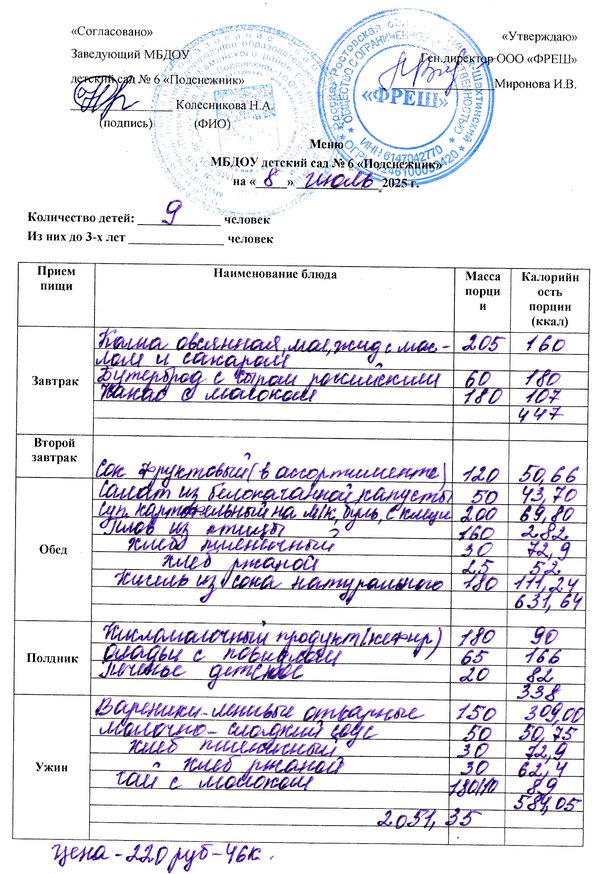 «Согласовано»
«Утверждаю»
Заведующий МБДОУ
Ген.директор ООО «ФРЕШ»
детский сад № 6 «Подснежник»
Миронова И.В.
Колесникова Н.А.
(подпись) (ФИО)
«ФРЕШ»
ИНН 6147042770
Меню
МБДОУ детский сад № 6 «Подснежник»
на « 8 » июль 2025 г.
Количество детей: 9 человек
Из них до 3-х лет ____________ человек
Прием пищи Наименование блюда Масса порции Калорийность порции (ккал)
Завтрак
Каша овсянная, мол, жид с мас- 205 160
лом и сахаром
Бутерброд с сыром российским 60 180
Какао с молоком 180 107
447
Второй завтрак
Сок фруктовый (в ассортименте) 120 50,66
Обед
Салат из белокачанной капусты 50 43,70
Суп картофельный на м/к, буль, с 200 69,80
Плов из птицы 160 282
хлеб пшеничный 30 72,9
хлеб ржаной 25 52
Кисель из сока натурального 180 111,24
631,64
Полдник
Кисломолочный продукт (кефир) 180 90
Оладьи с повидлом 65 166
Печенье детское 20 82
338
Ужин
Вареники-ленивые отварные 150 309,00
Молочно-сладкий соус 50 50,75
хлеб пшеничный 30 72,9
хлеб ржаной 30 62,4
Чай с молоком 180/10 89
584,05
2051,35
цена - 220 руб - 46 к.